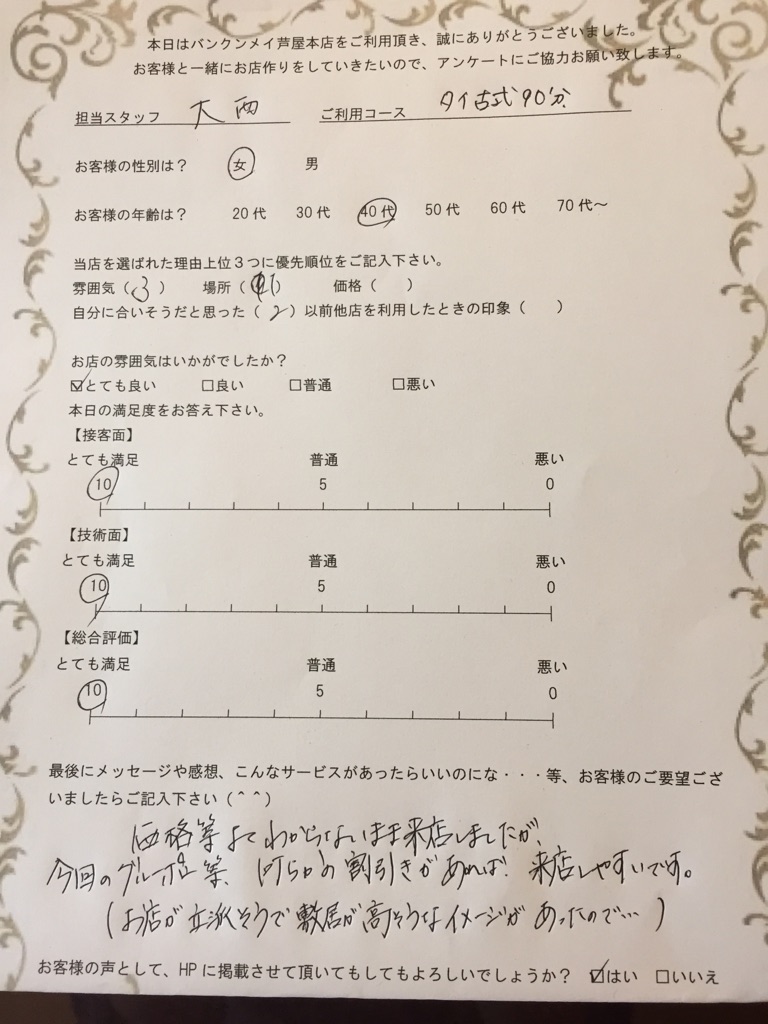 本日はバンクンメイ芦屋本店をご利用頂き、誠にありがとうございました。
お客様と一緒にお店作りをしていきたいので、アンケートにご協力お願い致します。
担当スタッフ 大西 ご利用コース タイ古式90分
お客様の性別は? 女 男
お客様の年齢は? 20代 30代 40代 50代 60代 70代〜
当店を選ばれた理由上位3つに優先順位をご記入下さい。
雰囲気(3) 場所(1) 価格( )
自分に合いそうだと思った(2)以前他店を利用したときの印象( )
お店の雰囲気はいかがでしたか?
☑とても良い □良い □普通 □悪い
本日の満足度をお答え下さい。
【接客面】
とても満足 普通 悪い
10 5 0
【技術面】
とても満足 普通 悪い
10 5 0
【総合評価】
とても満足 普通 悪い
10 5 0
最後にメッセージや感想、こんなサービスがあったらいいのにな・・・等、お客様のご要望ござ
いましたらご記入下さい(^^)
価格等よくわからないまま来店しましたが、
今回のグルーポン等、何らかの割引きがあれば、来店しやすいです。
(お店が立派そうで敷居が高そうなイメージがあったので…)
お客様の声として、HPに掲載させて頂いてもしてもよろしいでしょうか? ☑はい □いいえ